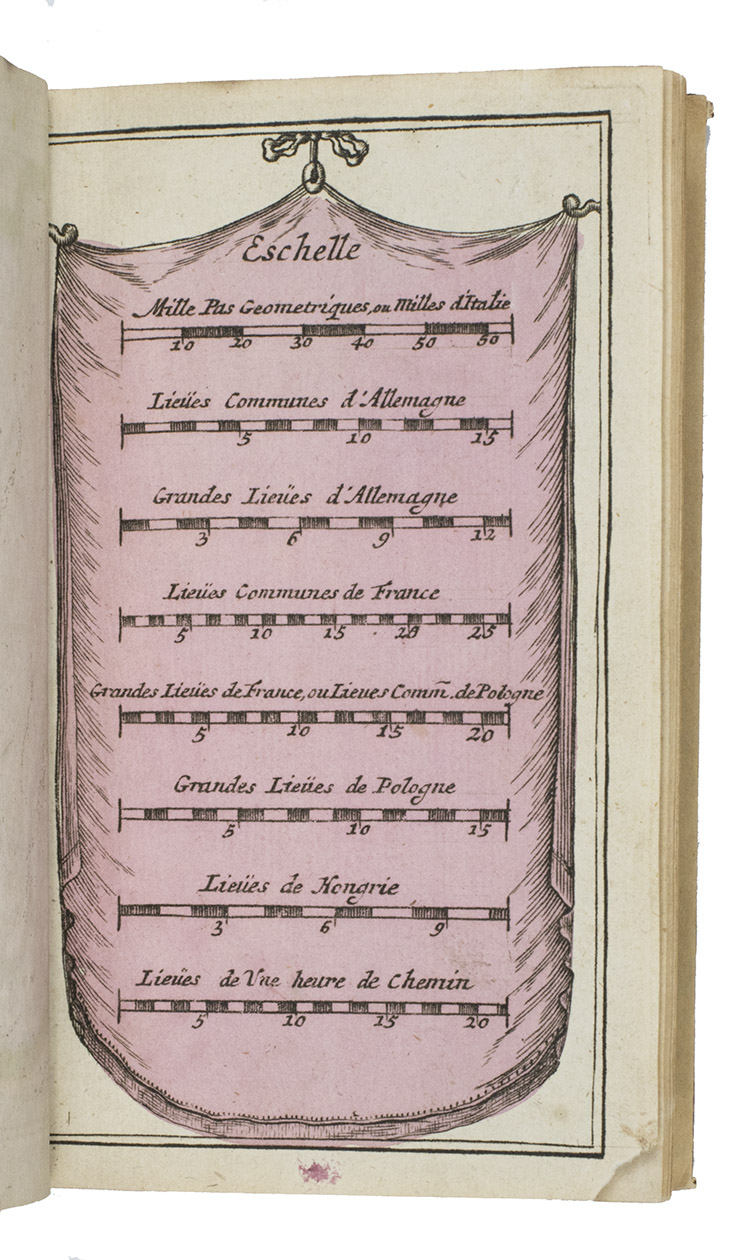 Eschelle
Mille Pas Geometriques, ou Milles d'Italie
10 20 30 40 50 50
Lieües Communes d'Allemagne
5 10 15
Grandes Lieües d'Allemagne
3 6 9 12
Lieües Communes de France
5 10 15 20 25
Grandes Lieües de France, ou Lieues Com̃. de Pologne
5 10 15 20
Grandes Lieües de Pologne
5 10 15
Lieües de Hongrie
3 6 9
Lieües de Vne heure de Chemin
5 10 15 20